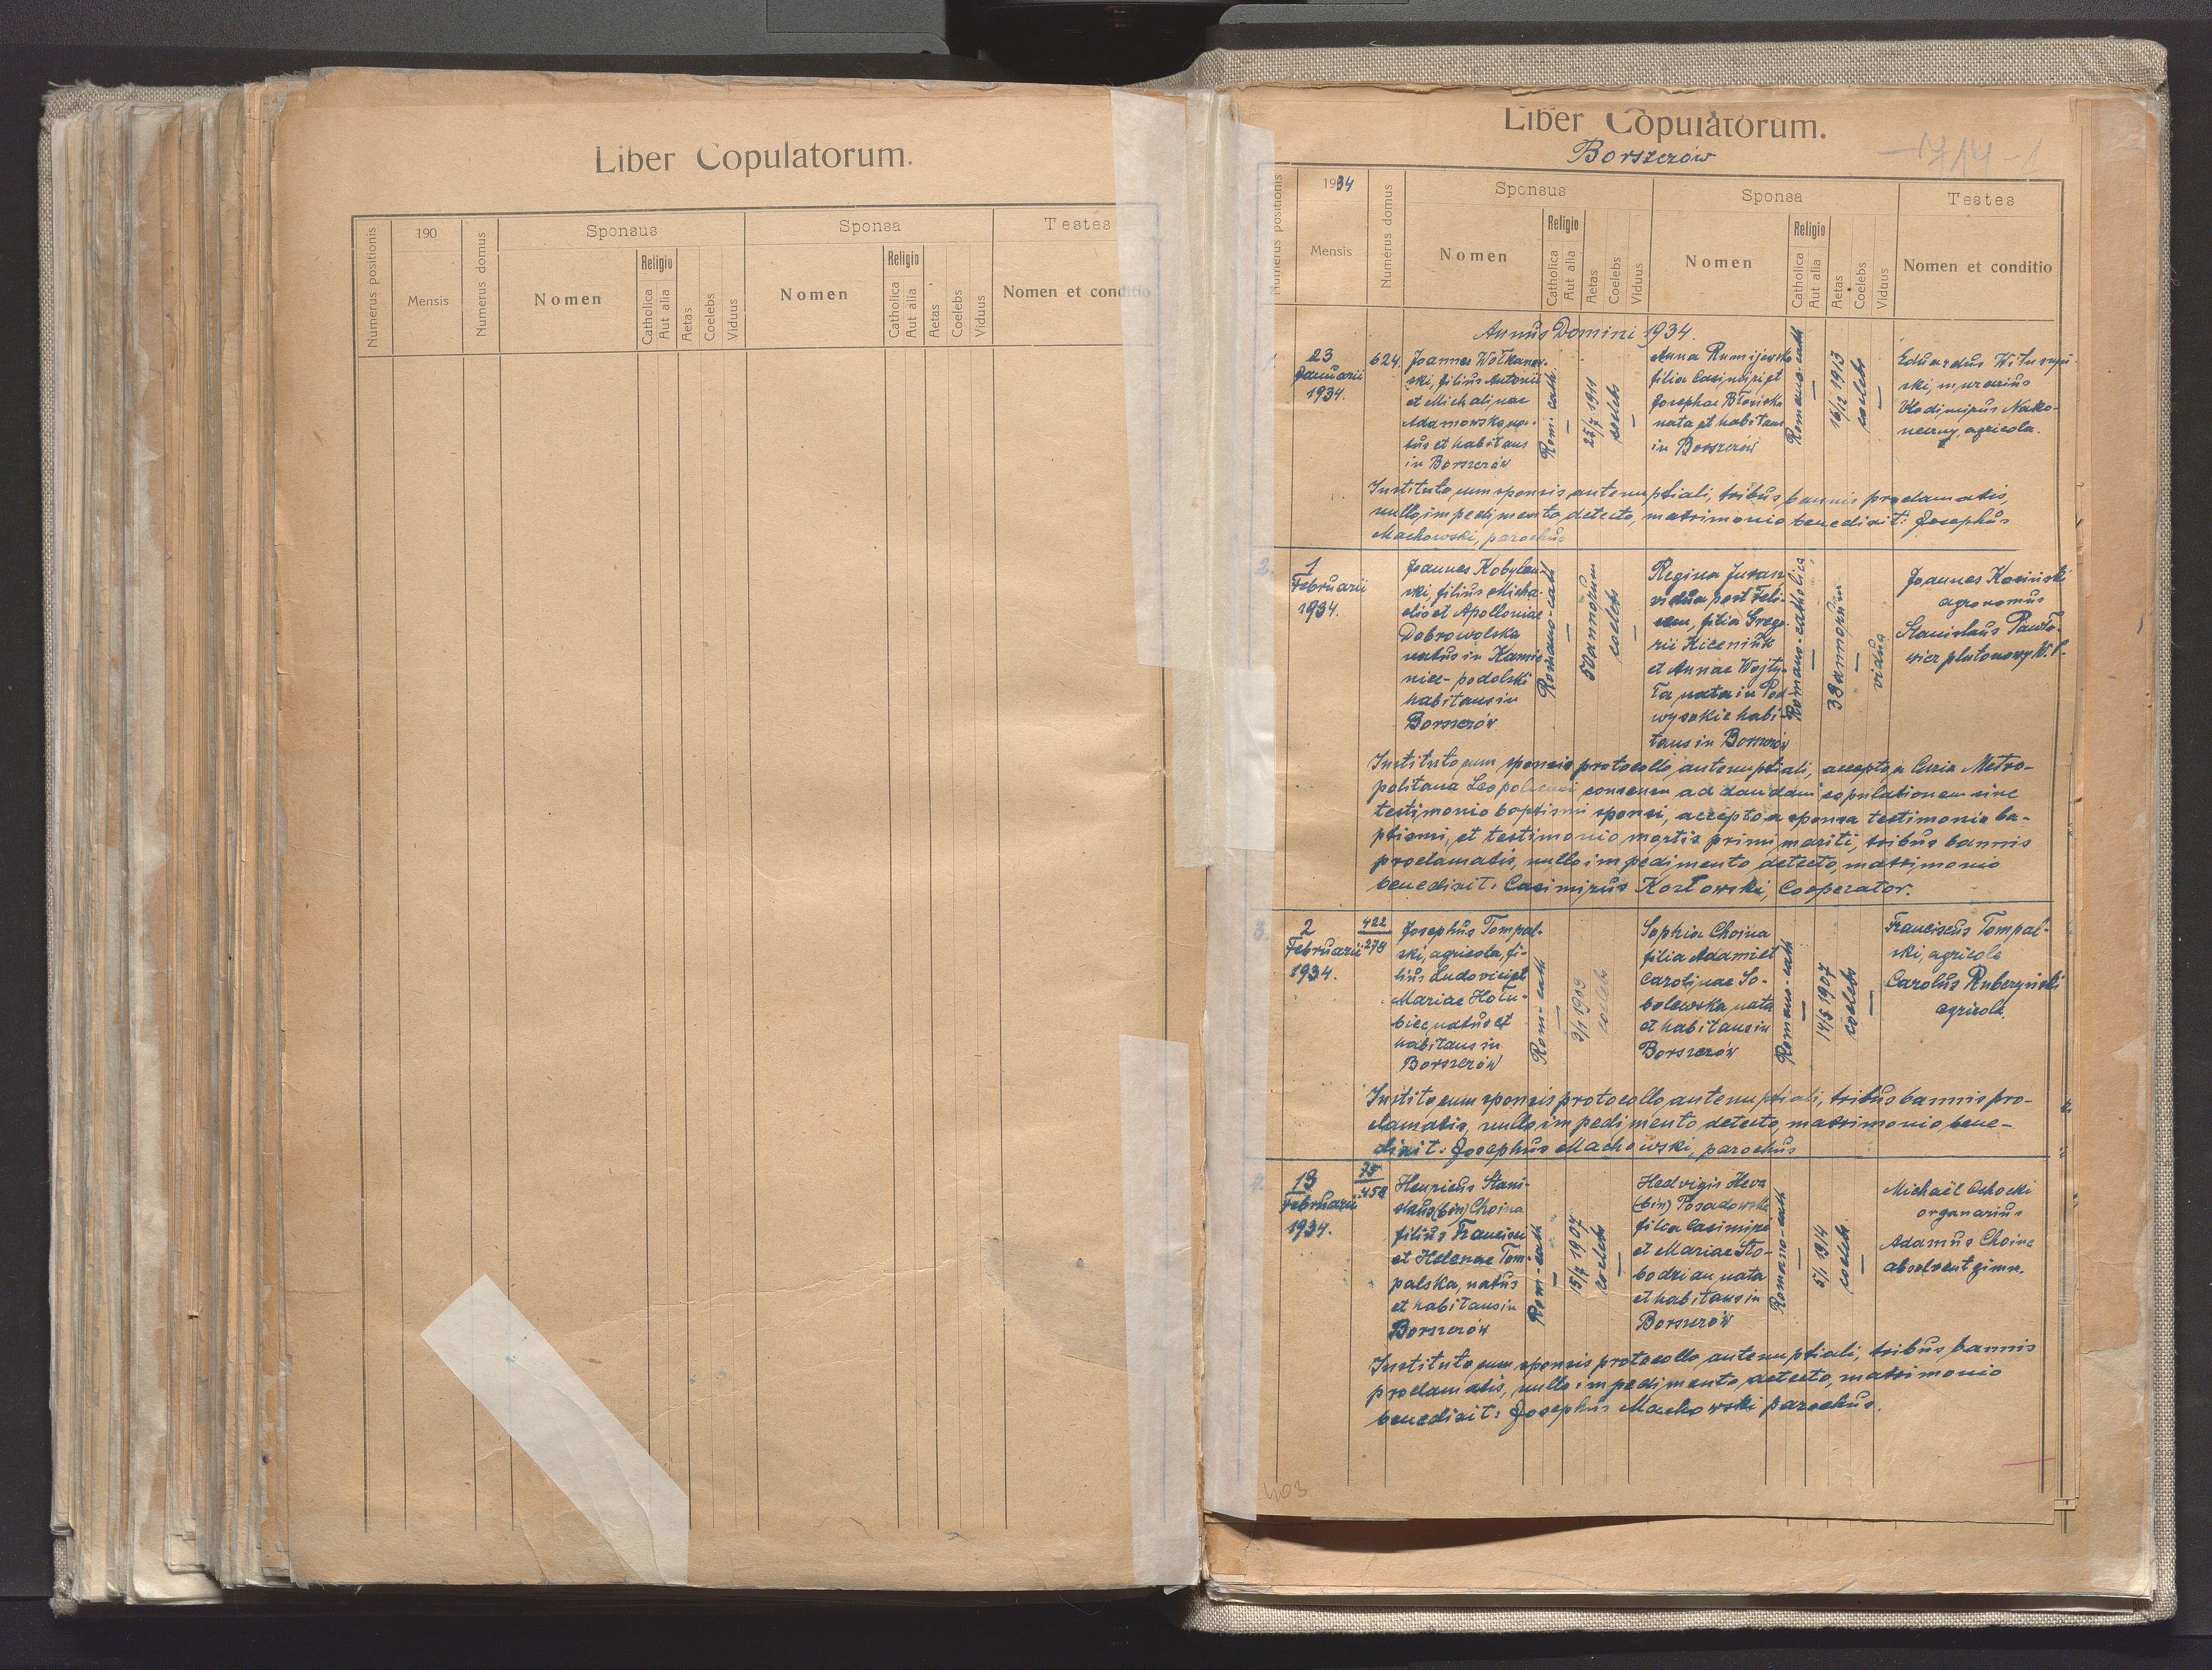 Liber Copulatorum.
Numerus positionis
190
Mensis
Numerus domus
Sponsus
Nomen
Religio
Catholica
Aut alia
Aetas
Coelebs
Viduus
Sponsa
Nomen
Religio
Catholica
Aut alia
Aetas
Coelebs
Viduus
Testes
Nomen et conditio
Liber Copulatorum.
Borszczów
714-1
Numerus positionis
1934
Mensis
Numerus domus
Sponsus
Nomen
Religio
Catholica
Aut alia
Aetas
Coelebs
Viduus
Sponsa
Nomen
Religio
Catholica
Aut alia
Aetas
Coelebs
Viduus
Testes
Nomen et conditio
Annus Domini 1934.
23
Januarii
1934.
624.
Joannes Wołkanow-
ski, filius Antonii
et Michalinae
Adamowska na-
tus et habitans
in Borszczów
Rom. cath.
25/7 1911
coelebs
Anna Rumijewska
filia Casimiri et
Josephae Błońska
nata et habitans
in Borszczów
Romano-cath
16/12 1913
coelebs
Eduardus
ski, murarius
Vlodimirus Nako-
neczny, agricola.
Instituto cum sponsis antenuptiali, tribus bannis proclamatis,
nullo impedimento detecto, matrimonio benedixit: Josephus
Machowski, parochus
2.
1
Februarii
1934.
Joannes Kobylań-
ski, filius Micha-
elis et Apolloniae
Dobrowolska
natus in Kamie-
niec-podolski
habitans in
Borszczów
Romano-cath
50 annorum
coelebs
Regina Juras,
vidua post Feli-
cem, filia Grego-
rii Kiceniuk
et Annae Wojty-
ła nata in Pod-
wysokie habi-
tans in Borszczów
Romano-catholica
38 annorum
vidua
Joannes Kosiński
agronomus
Stanislaus Pawło-
wicz plutonowy W.P.
Instituto cum sponsis protocollo antenuptiali, accepto a Curia Metro-
politana Leopoliensi consensu ad dandam copulationem sine
testimonio baptismi sponsi, accepto a sponsa testimonio ba-
ptismi, et testimonio mortis primi mariti, tribus bannis
proclamatis, nullo impedimento detecto, matrimonio
benedixit: Casimirus Kozłowski, Cooperator.
3.
2
Februarii
1934.
422
278
Josephus Tompal-
ski, agricola, fi-
lius Ludovici et
Mariae Hołu-
biec, natus et
habitans in
Borszczów
Rom-cath
9/1 1909
coelebs
Sophia Choina
filia Adami et
Carolinae So-
bolewska nata
et habitans in
Borszczów
Romano-cath
14/5 1907
coelebs
Franciscus Tompal-
ski, agricola
Carolus Ruberzyński
agricola.
Instituto cum sponsis protocollo antenuptiali, tribus bannis pro-
clamatis, nullo impedimento detecto, matrimonio bene-
dixit: Josephus Machowski, parochus
4.
13
Februarii
1934.
75
458
Henricus Stani-
slaus (bin) Choina
filius Francisci
et Helenae Tom-
palska, natus
et habitans in
Borszczów
Rom-cath
15/7 1907
coelebs
Hedvigis Heva
(bin) Posadowska
filia Casimiri
et Mariae Sło-
bodzian nata
et habitans in
Borszczów
Romano-cath
5/1 1914
coelebs
Michaël Ochocki
organarius
Adamus Choina
absolvent gimn.
Instituto cum sponsis protocollo antenuptiali, tribus bannis
proclamatis, nullo impedimento detecto, matrimonio
benedixit: Josephus Machowski parochus.
403